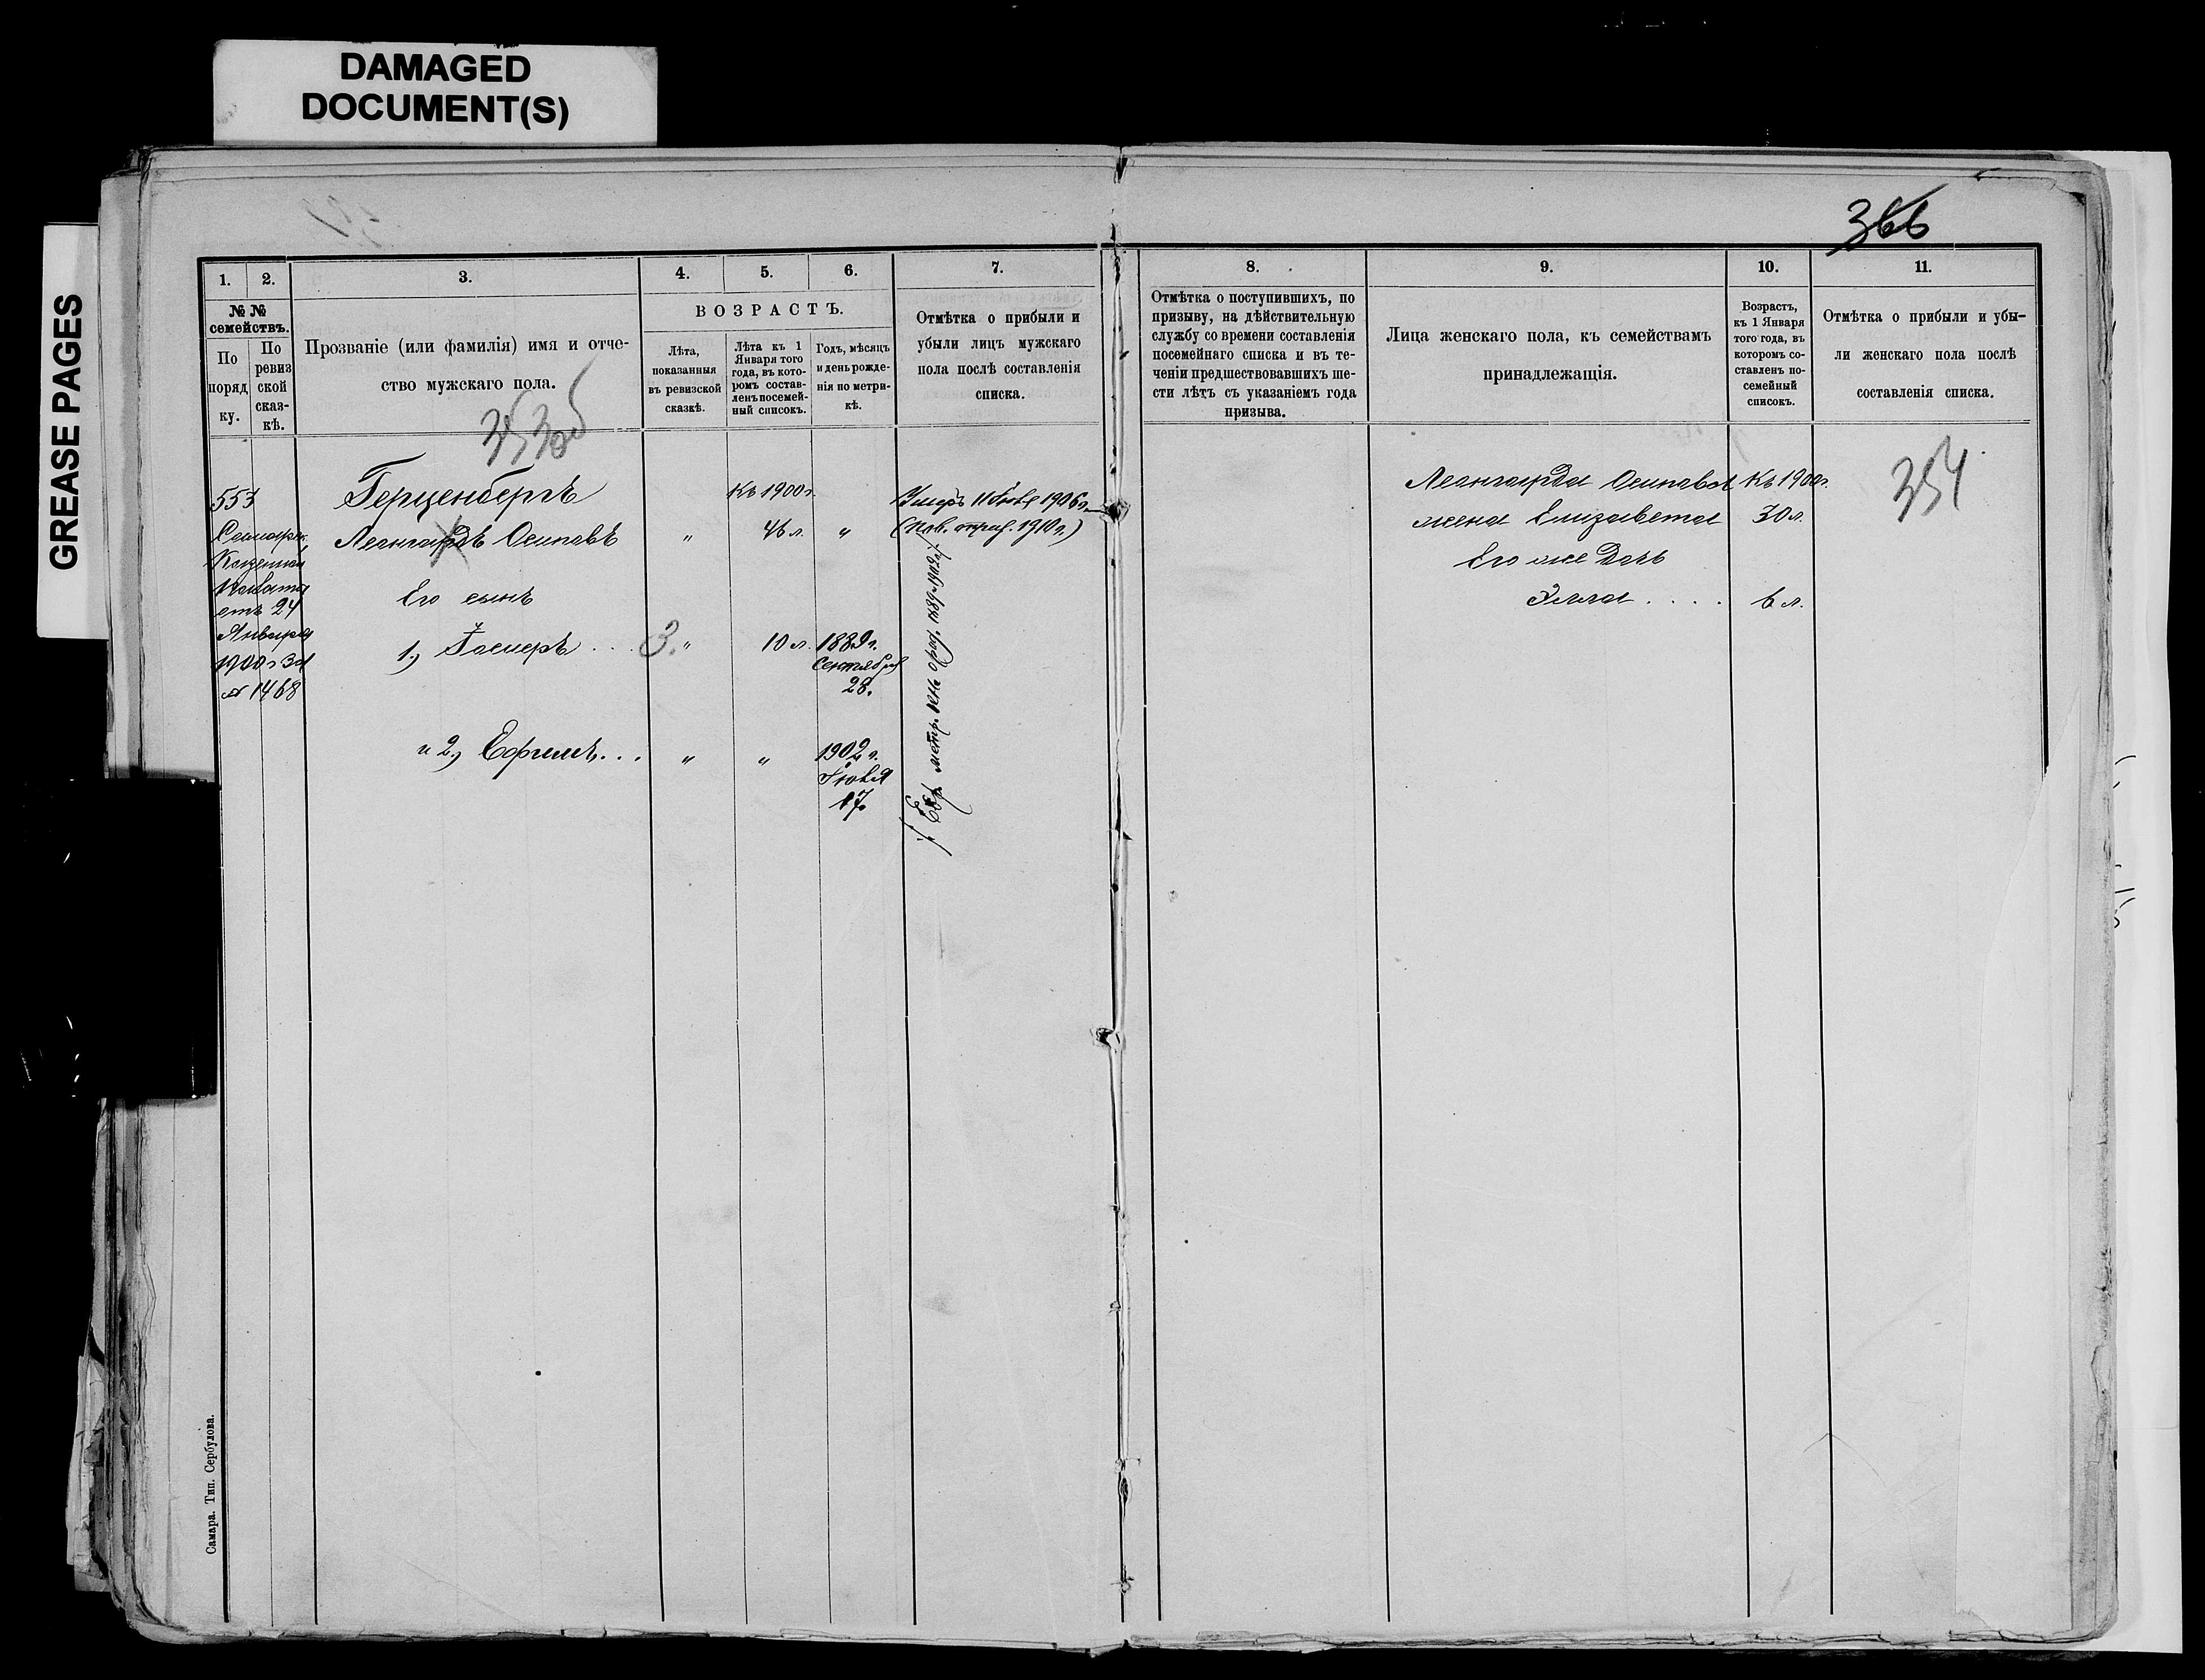 DAMAGED
DOCUMENT(S)
GREASE PAGES
366
1.
2.
3.
4.
5.
6.
7.
8.
9.
10.
11.
№ №
семействъ.
По
поряд
ку.
По
ревиз
ской
сказ-
кѣ.
Прозваніе (или фамилія) имя и отче-
ство мужскаго пола.
ВОЗРАСТЪ.
Лѣта,
показанныя
въ ревизской
сказкѣ.
Лѣта къ 1
Января того
года, въ кото-
ромъ состав-
ленъ посемей-
ный списокъ.
Годъ, мѣсяцъ
и день рожде-
нія по метри-
кѣ.
Отмѣтка о прибыли и
убыли лицъ мужскаго
пола послѣ составленія
списка.
Отмѣтка о поступившихъ, по
призыву, на дѣйствительную
службу со времени составленія
посемейнаго списка и въ те-
ченіи предшествовавшихъ ше-
сти лѣтъ съ указаніемъ года
призыва.
Лица женскаго пола, къ семействамъ
принадлежащія.
Возрастъ,
къ 1 Января
того года, въ
которомъ со-
ставленъ по-
семейный
списокъ.
Отмѣтка о прибыли и убы-
ли женскаго пола послѣ
составленія списка.
353об
354
553
Герценбергъ
Къ 1900 г.
Умеръ 1906 г.
Леонгардъ Осиповъ
"
46 л.
"
1910 г.)
Казенной
Палаты
отъ 24
Января
1900 г за
№ 1468
Его сынъ
1,
"
10 л.
1889 г.
Сентября
28.
и 2, Ефимъ...
"
"
1902 г.
17.
Леонгарда Осипова
Къ 1900 г.
жена Елизавета
30 л.
Его же дочь
Элла....
6 л.
Самара. Тип. Сербулова.